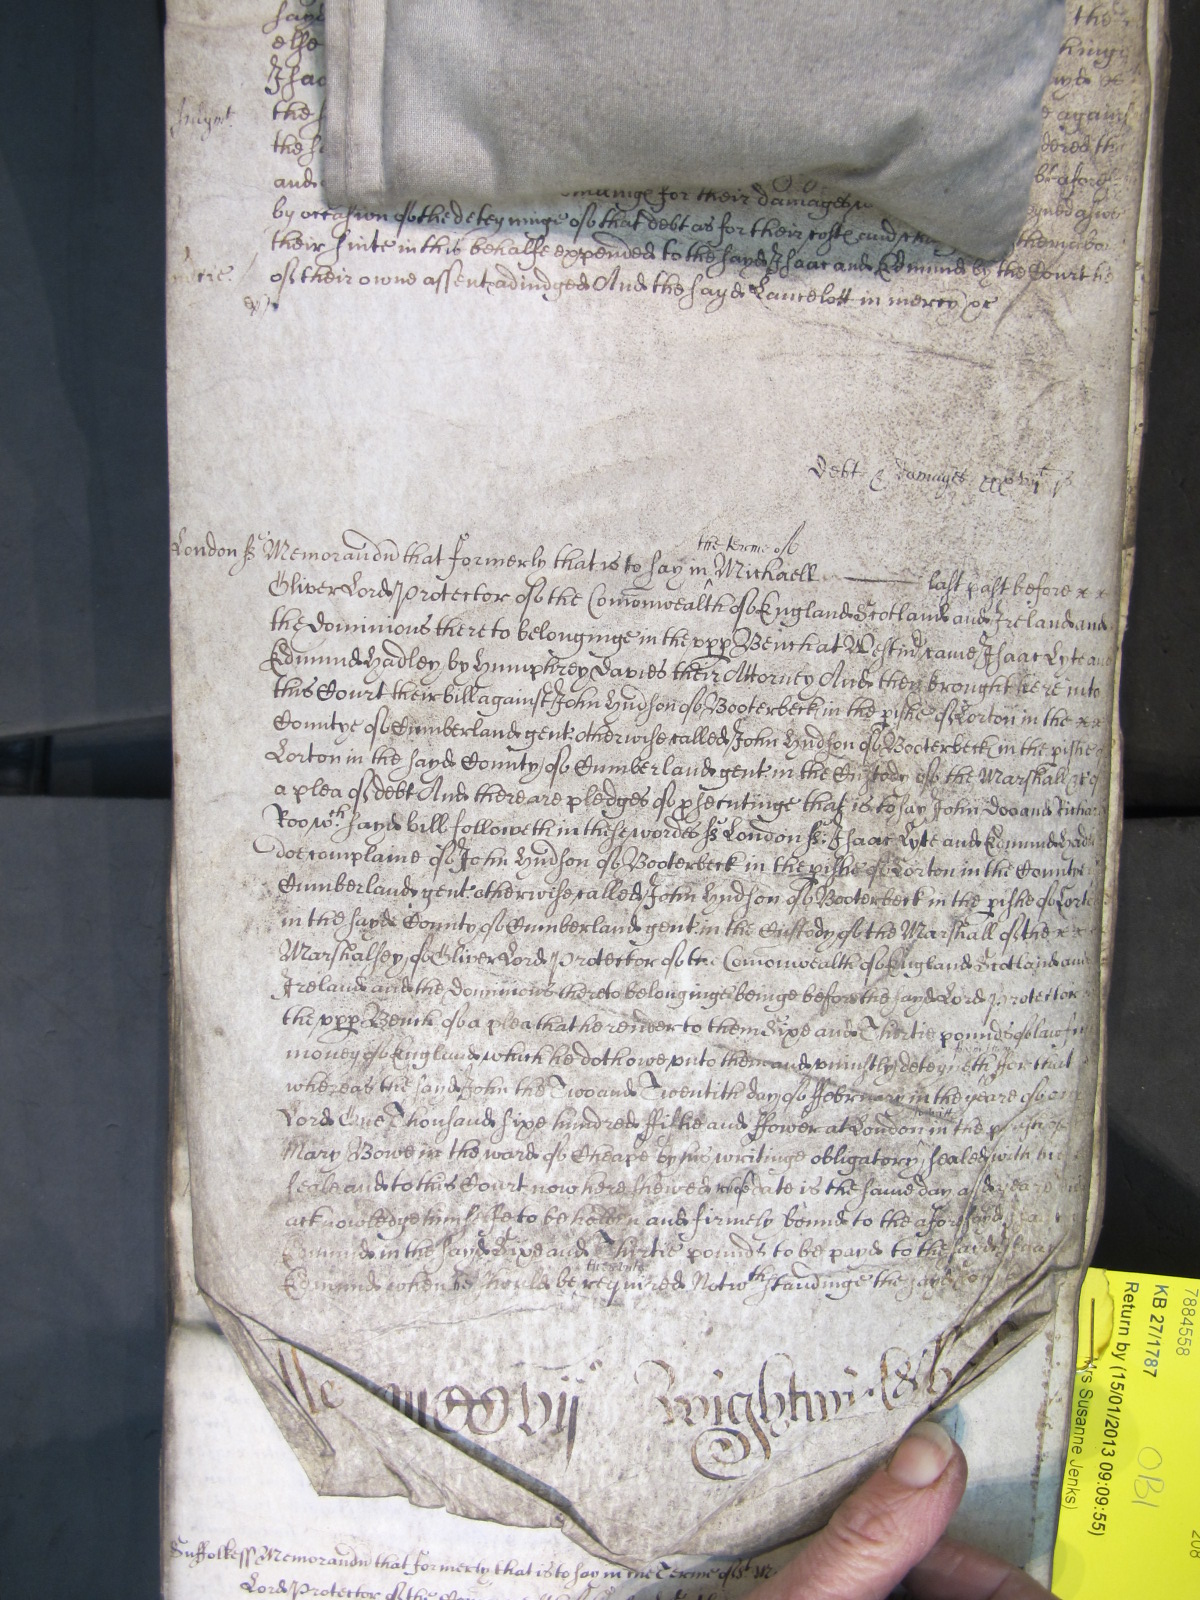 sayd the
else kings
Isaac
Judgmt. the against
the dered the
and for their damages
by occasion of the deteyninge of that debt as for their costs and
their suite in this behalfe expended to the sayd Isaac and Edmund by the Court he
of their owne assent adiudged And the sayd Lancelott in mercy &c
Debt & damages
London ss Memorandu that formerly that is to say in the terme of Michaell last past before x x
Oliver Lord Protector of the Comonwealth of England Scotland and Ireland and
the dominions thereto belonginge in the vpp Bench at Westm came Isaac Lyte and
Edmund Hadley by Humphrey Davies their Attorney And they brought here into
this Court their bill against John Hudson of Booterbeck in the pishe of Lorton in the x x
Countye of Cumberland gent. otherwise called John Hudson of Booterbeck in the pishe
Lorton in the sayd County of Cumberland gent. in the Custody of the Marshall &c of
a plea of debt And there are pledges of psecutinge that is to say John Doo and Richard
Roo wch. sayd bill followeth in these wordes ss London ss. Isaac Lyte and Edmund Hadl
doe complaine of John Hudson of Booterbeck in the pishe of Lorton in the Countye
Cumberland gent. otherwise called John Hudson of Booterbeck in the pishe of Lorto
in the sayd County of Cumberland gent. in the Custody of the Marshall of the x x
Marshalsey of Oliver Lord Protector of the Comonwealth of England Scotland and
Ireland and the dominions thereto belonginge beinge before the sayd Lord Protector
the vpp Bench of a plea that he render to them Sixe and Thirtie pounds of lawfu
money of England which he doth owe vnto them and vniustly deteyneth for that
whereas the sayd John the Two and Twentith day of February in the yeare of our
Lord One Thousand sixe hundred fiftie and fower at London in the pishe
Mary Bowe in the ward of Cheape by his writinge obligatory sealed with his
seale and to this Court now here shewed whose date is the same day and yeare
acknowledge himselfe to be holden and firmely bound to the aforesayd Isaac
Edmund in the sayd Sixe and Thirtie pounds to be payd to the sayd Isaac
Edmund when he should be therevnto required Notwth standinge the sayd
Wightwi
Suffolke ss Memorandu that formerly that is to say in the Terme of St M
Lord Protector of the
7884558
KB 27/1787
Return by (15/01/2013 09:09:55)
Mrs Susanne Jenks)
OBI
208